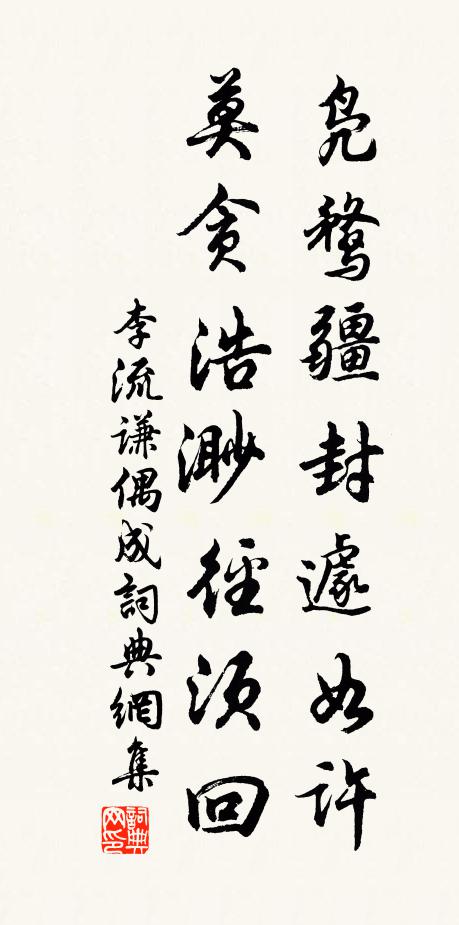 凫鹜疆封遽如许
莫贪浩渺径须回
李流谦偶成詞典網集
詞典网印